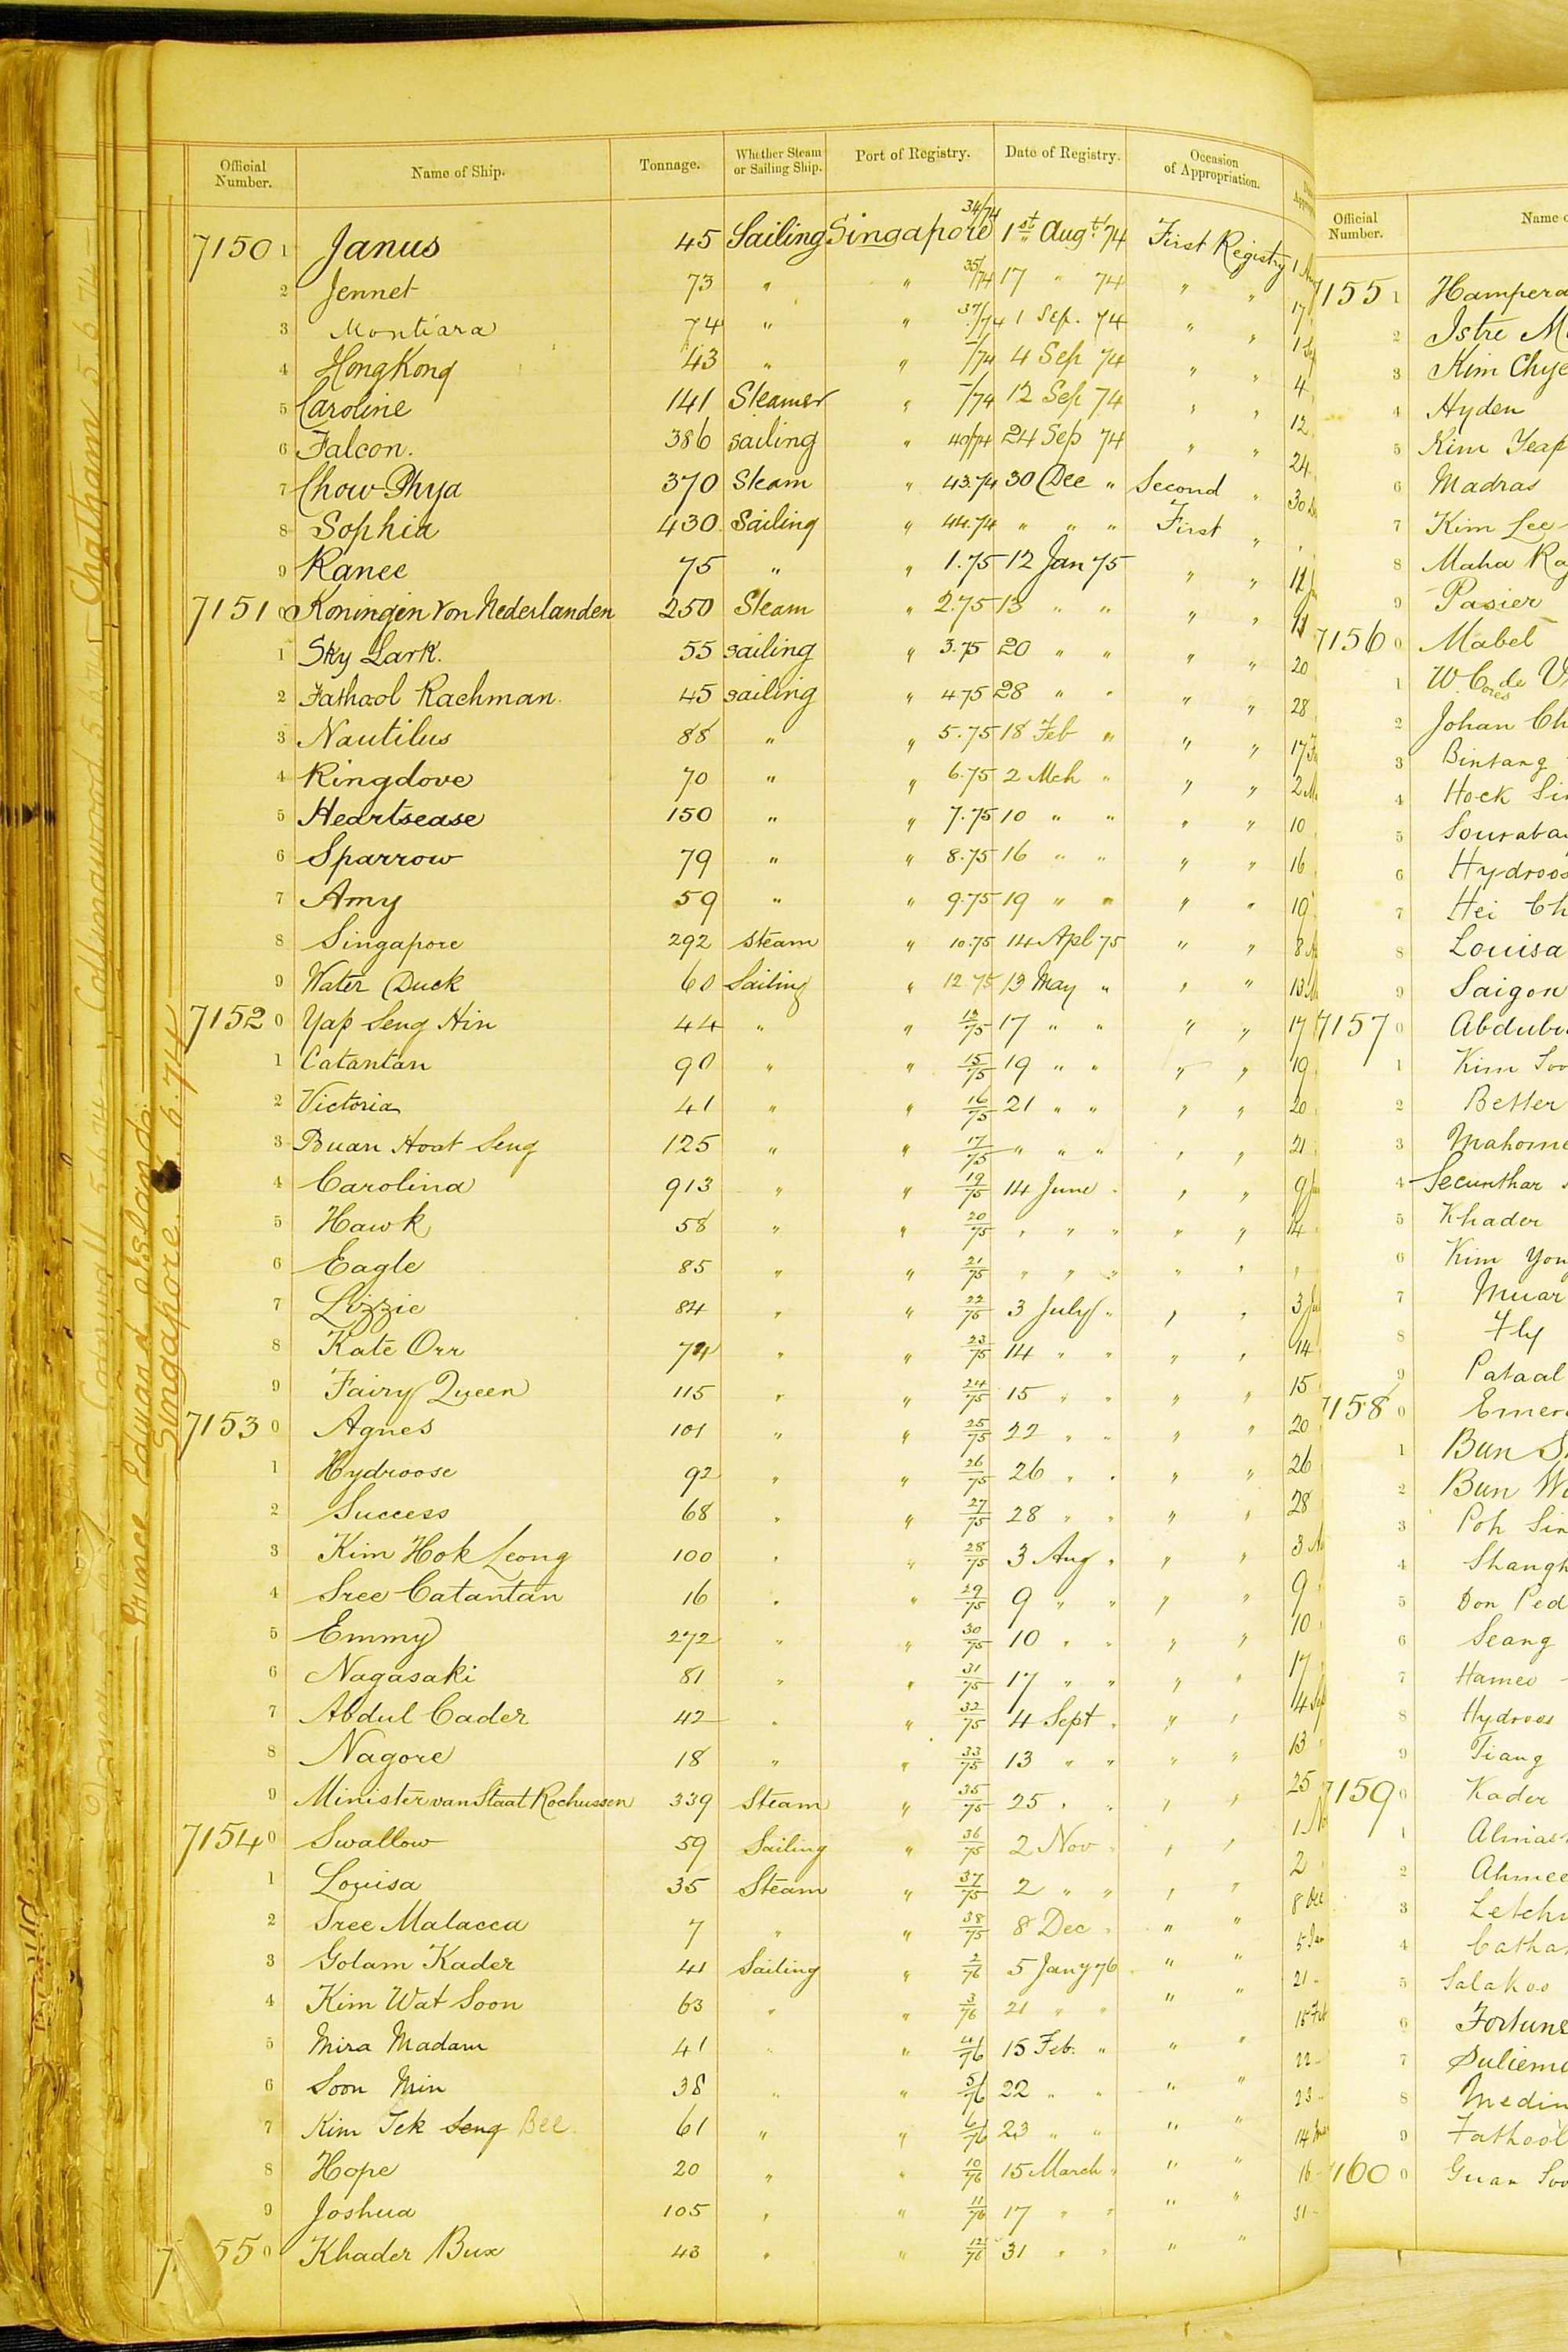 Official Number. Name of Ship. Tonnage. Whether Steam or Sailing Ship. Port of Registry. Date of Registry. Occasion of Appropriation.
7150 1 Janus 45 Sailing Singapore 34/74 1st Augt. 74 First Registry
2 Jennet 73 " " 35/74 17 " 74 " " 17
3 Montiara 74 " " 37/74 1 Sep. 74 " " 1 Sep
4 HongKong 43 " " -/74 4 Sep 74 " " 4
5 Caroline 141 Steamer " -/74 12 Sep 74 " " 12
6 Falcon. 386 Sailing " 40/74 24 Sep 74 " " 24
7 Chow Phya 370 Steam " 43.74 30 Dec " Second " 30
8 Sophia 430 Sailing " 44.74 " " " First "
9 Ranee 75 " " 1.75 12 Jan 75 " " 12
7151 0 Koningin Von Nederlanden 250 Steam " 2.75 13 " " " "
1 Sky Lark. 55 sailing " 3.75 20 " " " " 20
2 Fathool Rachman 45 sailing " 4 75 28 " " " " 28
3 Nautilus 88 " " 5.75 18 Feb " " " 17
4 Ringdove 70 " " 6.75 2 Mch " " " 2
5 Heartsease 150 " " 7.75 10 " " " " 10
6 Sparrow 79 " " 8.75 16 " " " " 16
7 Amy 59 " " 9.75 19 " " " " 19
8 Singapore 292 steam " 10.75 14 Apl 75 " " 8
9 Water Duck 60 Sailing " 12.75 13 May " " " 13
7152 0 Yap Seng Hin 44 " " 13/75 17 " " " " 17
1 Catantan 90 " " 15/75 19 " " " " 19
2 Victoria 41 " " 16/75 21 " " " " 20
3 Buan Hoat Seng 125 " " 17/75 " " " " " 21
4 Carolina 913 " " 19/75 14 June " " " 9
5 Hawk 58 " " 20/75 " " " " " 14
6 Eagle 85 " " 21/75 " " " " " "
7 Lizzie 84 " " 22/75 3 July " " " 3
8 Kate Orr 74 " " 23/75 14 " " " " 14
9 Fairy Queen 115 " " 24/75 15 " " " " 15
7153 0 Agnes 101 " " 25/75 22 " " " " 20
1 Hydroose 92 " " 26/75 26 " " " " 26
2 Success 68 " " 27/75 28 " " " " 28
3 Kim Hok Leong 100 " " 28/75 3 Aug " " " 3
4 Sree Catantan 16 " " 29/75 9 " " " " 9
5 Emmy 272 " " 30/75 10 " " " " 10
6 Nagasaki 81 " " 31/75 17 " " " " 17
7 Abdul Cader 42 " " 32/75 4 Sept " " " 4 Sep
8 Nagore 18 " " 33/75 13 " " " " 13
9 Minister van Staat Rochussen 339 Steam " 35/75 25 " " " " 25
7154 0 Swallow 59 Sailing " 36/75 2 Nov " " " 1 No
1 Louisa 35 Steam " 37/75 2 " " " " 2
2 Sree Malacca 7 " " 38/75 8 Dec " " " 8 Dec
3 Golam Kader 41 Sailing " 2/76 5 Jany 76 " " 5 Jan
4 Kim Wat Soon 63 " " 3/76 21 " " " " 21
5 Mira Madam 41 " " 4/76 15 Feb. " " " 15 Feb
6 Soon Min 38 " " 5/76 22 " " " " 22
7 Kim Tek Seng Bee 61 " " 6/76 23 " " " " 23
8 Hope 20 " " 10/76 15 March " " " 14 Mar
9 Joshua 105 " " 11/76 17 " " " " 16
7 55 0 Khader Bux 43 " " 12/76 31 " " " " 31
Prince Edward Island do.
Singapore
Official Number. Name
7155 1 Hampera
2 Istre M
3 Kim Chye
4 Hyden
5 Kim Yeap
6 Madras
7 Kim Lee
8 Maha Ra
9 Pasier
7156 0 Mabel
1 W. Cores de V
2 Johan Ch
3 Bintang
4 Hock Si
5 Souraba
6 Hydroos
7 Hei Ch
8 Louisa
9 Saigon
7157 0 Abdub
1 Kim Soo
2 Better
3 Mahome
4 Secunthar
5 Khader
6 Kim Yon
7 Muar
8 Fly
9 Pataal
7158 0 Emer
1 Bun S
2 Bun W
3 Poh Sin
4 Shangh
5 Don Ped
6 Seang
7 Hameo
8 Hydroos
9 Tiang
7159 0 Kader
1 Almas
2 Ahmee
3 Letch
4 Catha
5 Salakoo
6 Fortune
7 Suliem
8 Medin
9 Fathool
7160 0 Guan Soo